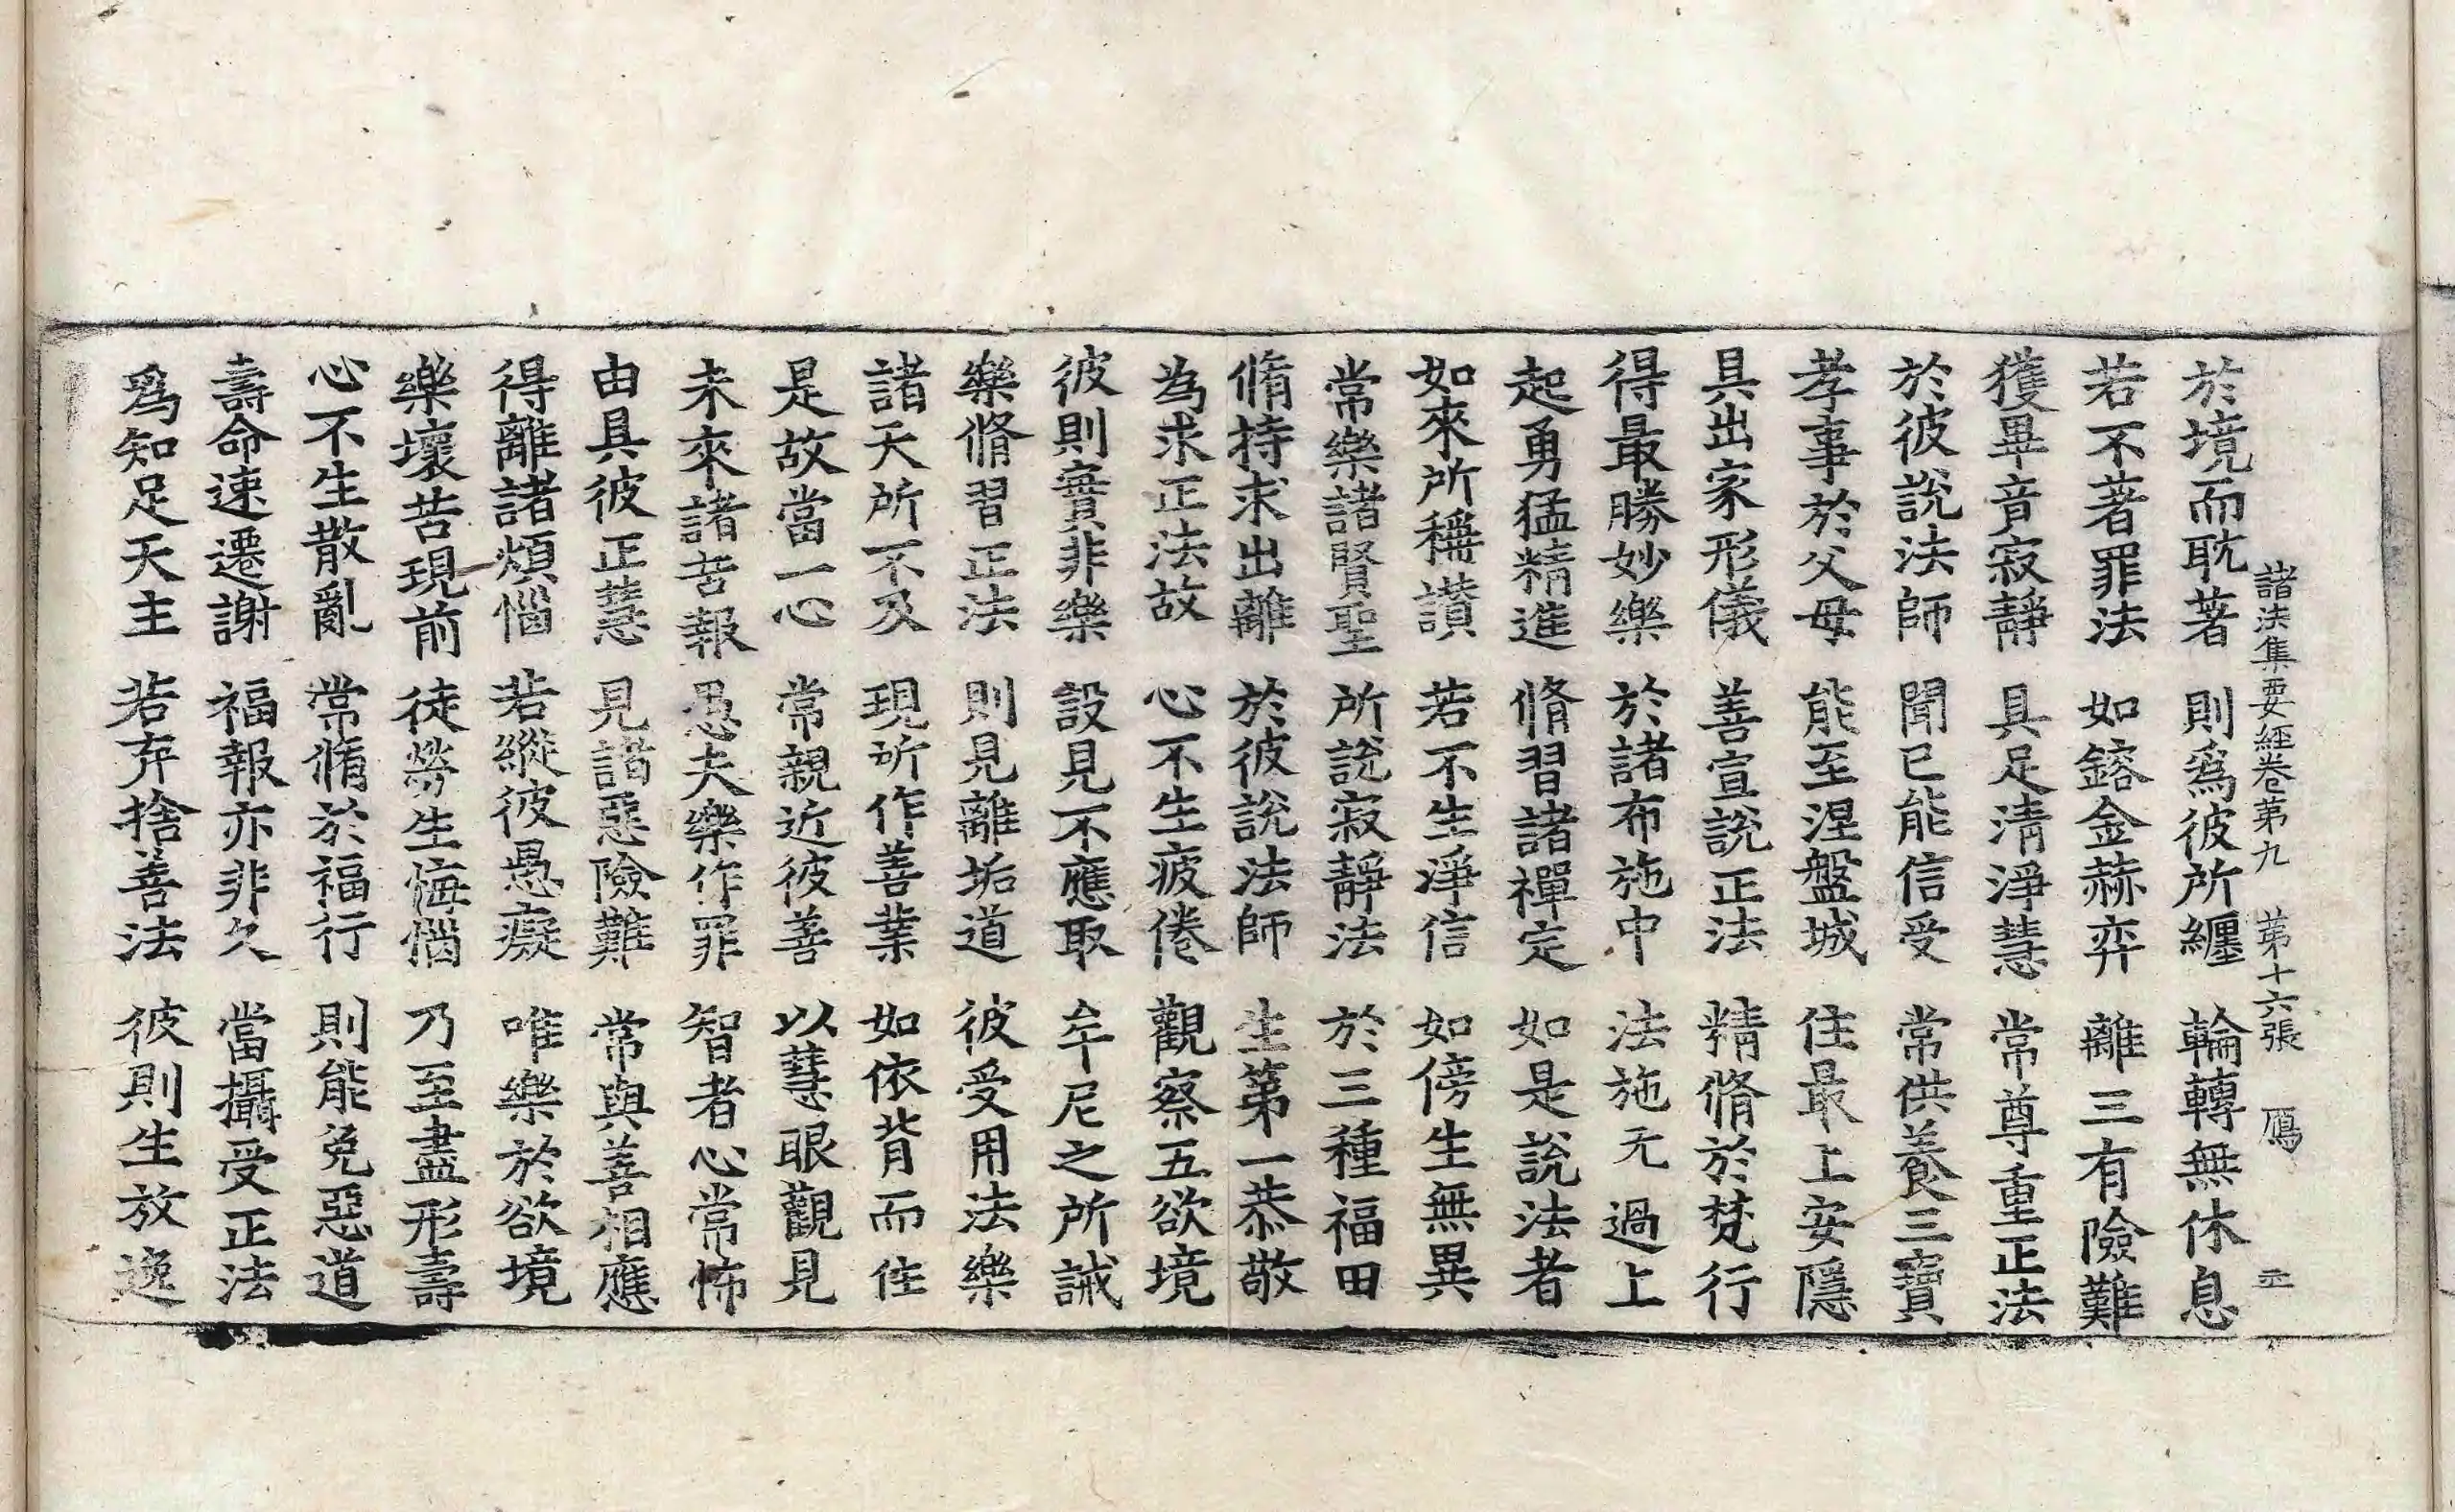 諸法集要經卷第九　第十六張　鴈
於境而耽著　則爲彼所纏　輪轉無休息
若不著罪法　如鎔金赫弈　離三有險難
獲畢竟寂靜　具足清淨慧　常尊重正法
於彼說法師　聞已能信受　常供養三寶
孝事於父母　能至涅盤城　住最上安隱
具出家形儀　善宣說正法　精脩於梵行
得最勝妙樂　於諸布施中　法施无過上
起勇猛精進　脩習諸禪定　如是說法者
如來所稱讃　若不生淨信　如傍生無異
常樂諸賢聖　所說寂靜法　於三種福田
脩持求出離　於彼說法師　生第一恭敬
為求正法故　心不生疲倦　觀察五欲境
彼則實非樂　設見不應取　牟尼之所誡
樂脩習正法　則見離垢道　彼受用法樂
諸天所不及　現所作善業　如依背而住
是故當一心　常親近彼善　以慧眼觀見
未來諸苦報　愚夫樂作罪　智者心常怖
由具彼正慧　見諸惡險難　常與善相應
得離諸煩惱　若縱彼愚癡　唯樂於欲境
樂壞苦現前　徒勞生悔惱　乃至盡形壽
心不生散亂　常脩於福行　則能免惡道
壽命速遷謝　福報亦非久　當攝受正法
爲知足天主　若弃捨善法　彼則生放逸